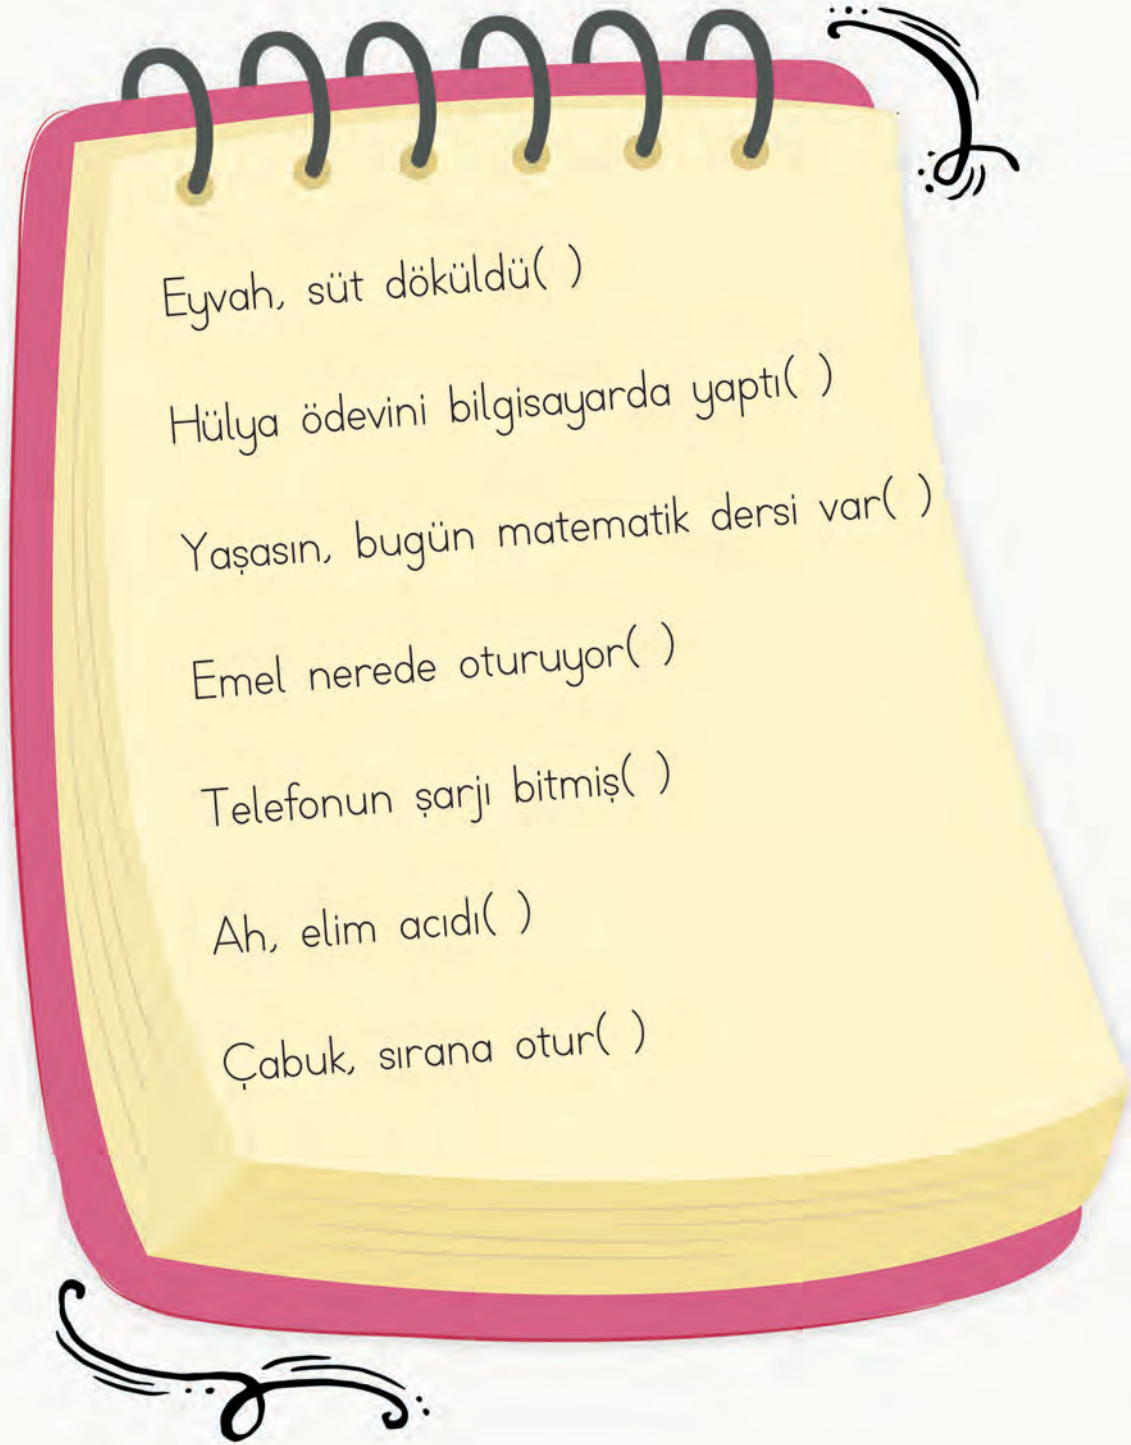 Eyvah, süt döküldü( )
Hülya ödevini bilgisayarda yaptı( )
Yaşasın, bugün matematik dersi var( )
Emel nerede oturuyor( )
Telefonun şarjı bitmiş( )
Ah, elim acıdı( )
Çabuk, sırana otur( )